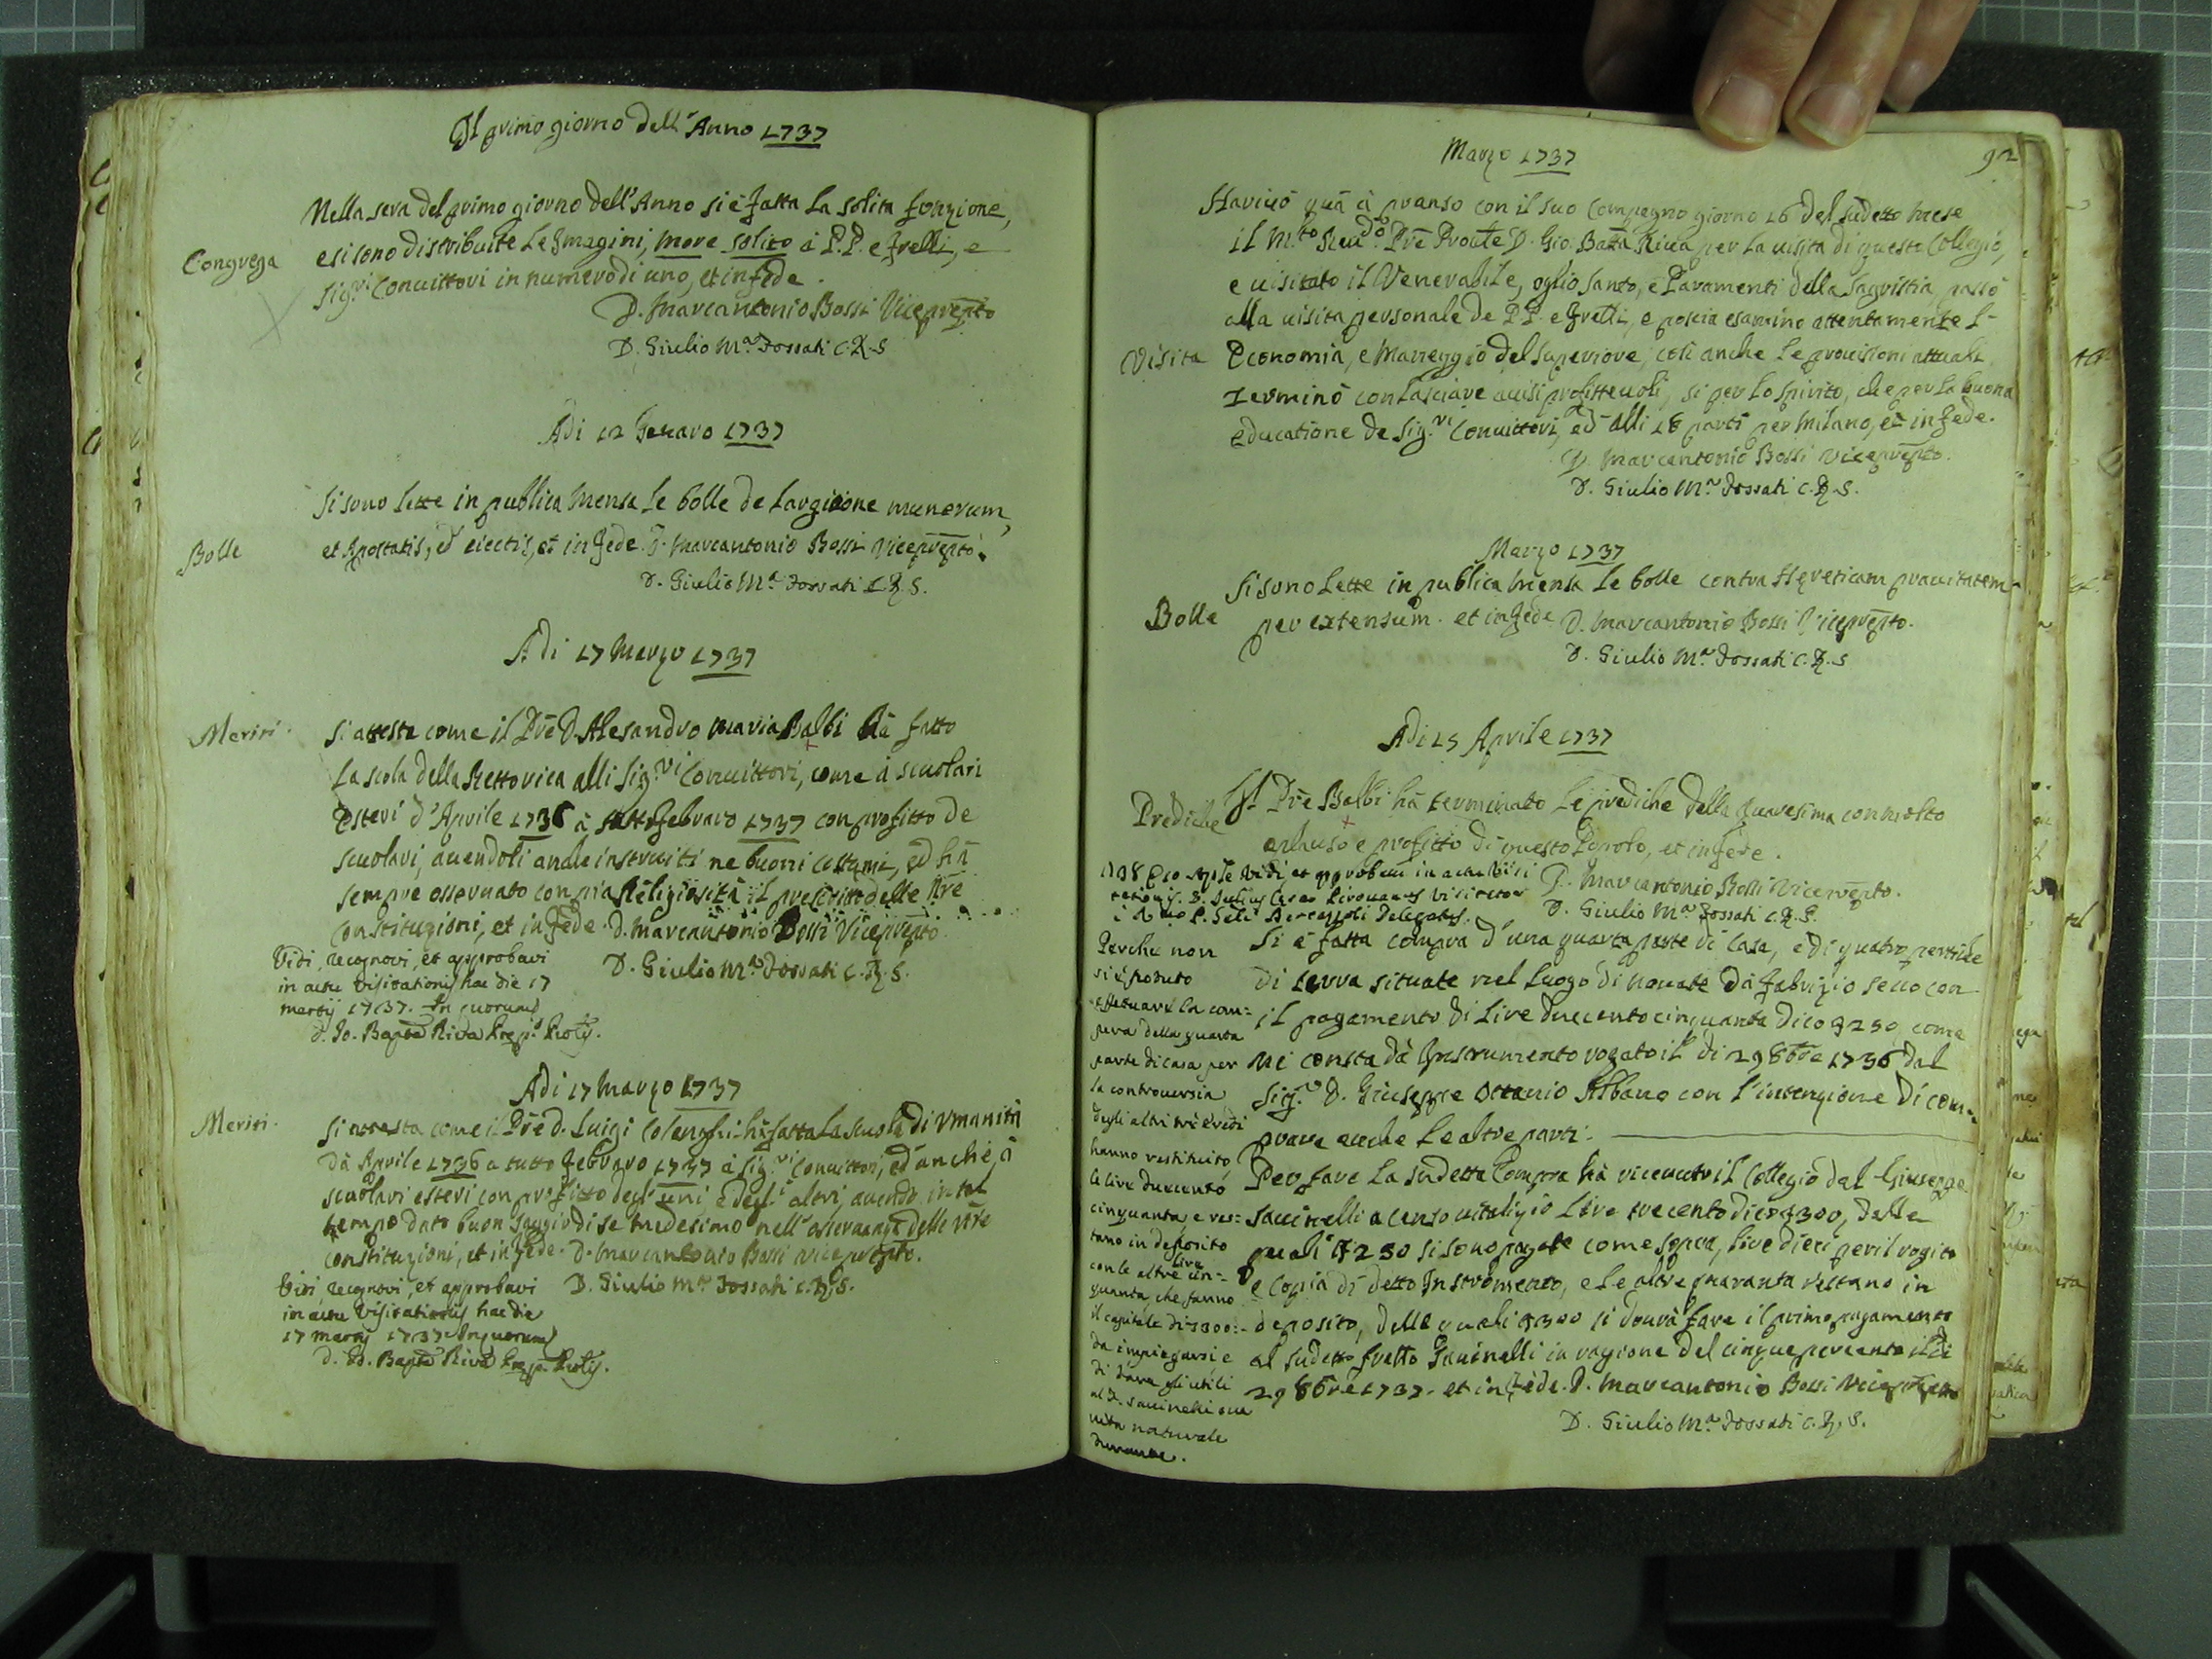 Il primo giorno dell'Anno 1737
Nella sera del primo giorno dell'Anno si è fatta la solita fonzione,
Congrega
e si sono distribuite le Imagini, more solito à P.P. e Frelli, e
Sig.ri Convittori in numero di uno, et in fede.
D. Marcantonio Bossi Viceprepto
D. Giulio M.a Fossati C.R.S
Adi 12 Genaro 1737
Si sono lette in publica mensa le bolle de largitione munerum,
Bolle
et Apostatis, ed eiectis, et in fede. D. Marcantonio Bossi Viceprepto.
D. Giulio M.a Fossati C.R.S.
Adi 17 Marzo 1737
Meriti.
Si attesta come il Pre D. Alesandro Maria Balbi hà fatto
la scola della Rettorica alli Sig.ri Convittori, come à scuolari
esteri d'Aprile 1736 à tutto febraro 1737 con profitto de
scuolari, avendoli anche instruiti ne buoni costumi, ed hà
sempre osservato con pia Religiosità il prescritto delle nre
Constituzioni, et in fede. D. Marcantonio Bossi Viceprepto
Vidi, recognovi, et approbavi
in actu Visitationis hac die 17
martij 1737. In quorum
D. Jo. Bapta Riva Prep.s Prolis.
D. Giulio M.a Fossati C.R.S.
Adi 17 Marzo 1737
Meriti.
Si attesta come il Pre D. Luigi Colenghi hà fatta la scuola di Umanità
dà Aprile 1736 a tutto febraro 1737 à Sig.ri Convittori, ed anche à
scuolari esteri con profitto degl'uni e degl'altri, avendo in tal
tempo dato buon saggio di se medesimo nell'osservanza delle nre
constituzioni, et in fede. D. Marcantonio Bossi viceprepto.
Vidi, recognovi, et approbavi
in actu Visitationis hac die
17 martij 1737 In quorum
D. Jo. Bapta Riva Prep. Prolis.
D. Giulio M.a Fossati C.R.S.
Marzo 1737
92
Harivò quà à pranso con il suo Compagno giorno 16 del sudetto mese
il M.to Reu.do Pre Proule D. Gio. Batta Riva per la visita di questo Collegio,
e visitato il Venerabile, oglio santo, e Paramenti della Sagristia, passò
alla visita personale de P.P. e Frelli, e poscia esaminò attentamente l'
Visita
Economia, e Maneggio del Superiore, così anche le provisioni attuali
Terminò con lasciare avisi profittevoli, si per lo spirito, che per la buona
educatione de Sig.ri Convittori, ed alli 18 partì per Milano, et in fede.
D. Marcantonio Bossi Viceprepto.
D. Giulio M.a Fossati C.R.S.
Marzo 1737
Si sono lette in publica mensa le bolle contra Hereticam pravitatem
Bolle
per extensum. et in fede D. Marcantonio Bossi Viceprepto.
D. Giulio M.a Fossati C.R.S
Adi 25 Aprile 1737
Prediche
Il Pre Balbi hà terminato le prediche della Quaresima con molto
aplauso e profitto di questo Popolo, et in fede.
D. Marcantonio Bossi Viceprepto.
D. Giulio M.a Fossati C.R.S.
1738 Vidi, et approbavi in actu Visi
tationis. D. Julius Cesar Visitator
Delegatus.
Si è fatta compra d'una quarta parte di casa, e di quatro pertiche
di terra situate nel luogo di Novate dà Fabrizio Seno con
il pagamento di Lire duecento cinquanta dico ₤ 250 come
ne consta dà Instrumento rogato il dì 29 8bre 1736 dal
Sig.r D. Giuseppe Ottavio Albano con l'intenzione di com-
prare anche le altre parti.
Per fare la sudetta Compra hà ricevuto il Collegio dal Giuseppe
Savinelli a censo vitalizio Lire trecento dico ₤ 300, delle
quali ₤ 250 si sono pagate come sopra, Lire dieci per il rogito
e copia di detto Instromento, e le altre quaranta restano in
deposito, delle quali ₤ 300 si dovrà fare il primo pagamento
al sudetto fretto Savinelli in ragione del cinque per cento il dì
29 8bre 1737. et in fede. D. Marcantonio Bossi Viceprepto
D. Giulio M.a Fossati C.R.S.
Perche non
si è potuto
effettuare la com=
pera della quarta
parte di casa per
la controversia
degli altri trè eredi
hanno restituito
le lire duecento
cinquanta, e res=
tano in deposito
con le altre lire cin=
quanta, che fanno
il capitale di ₤ 300:
da impiegarsi e
di dare gli utili
al d. Savinelli sua
vita naturale
durante.